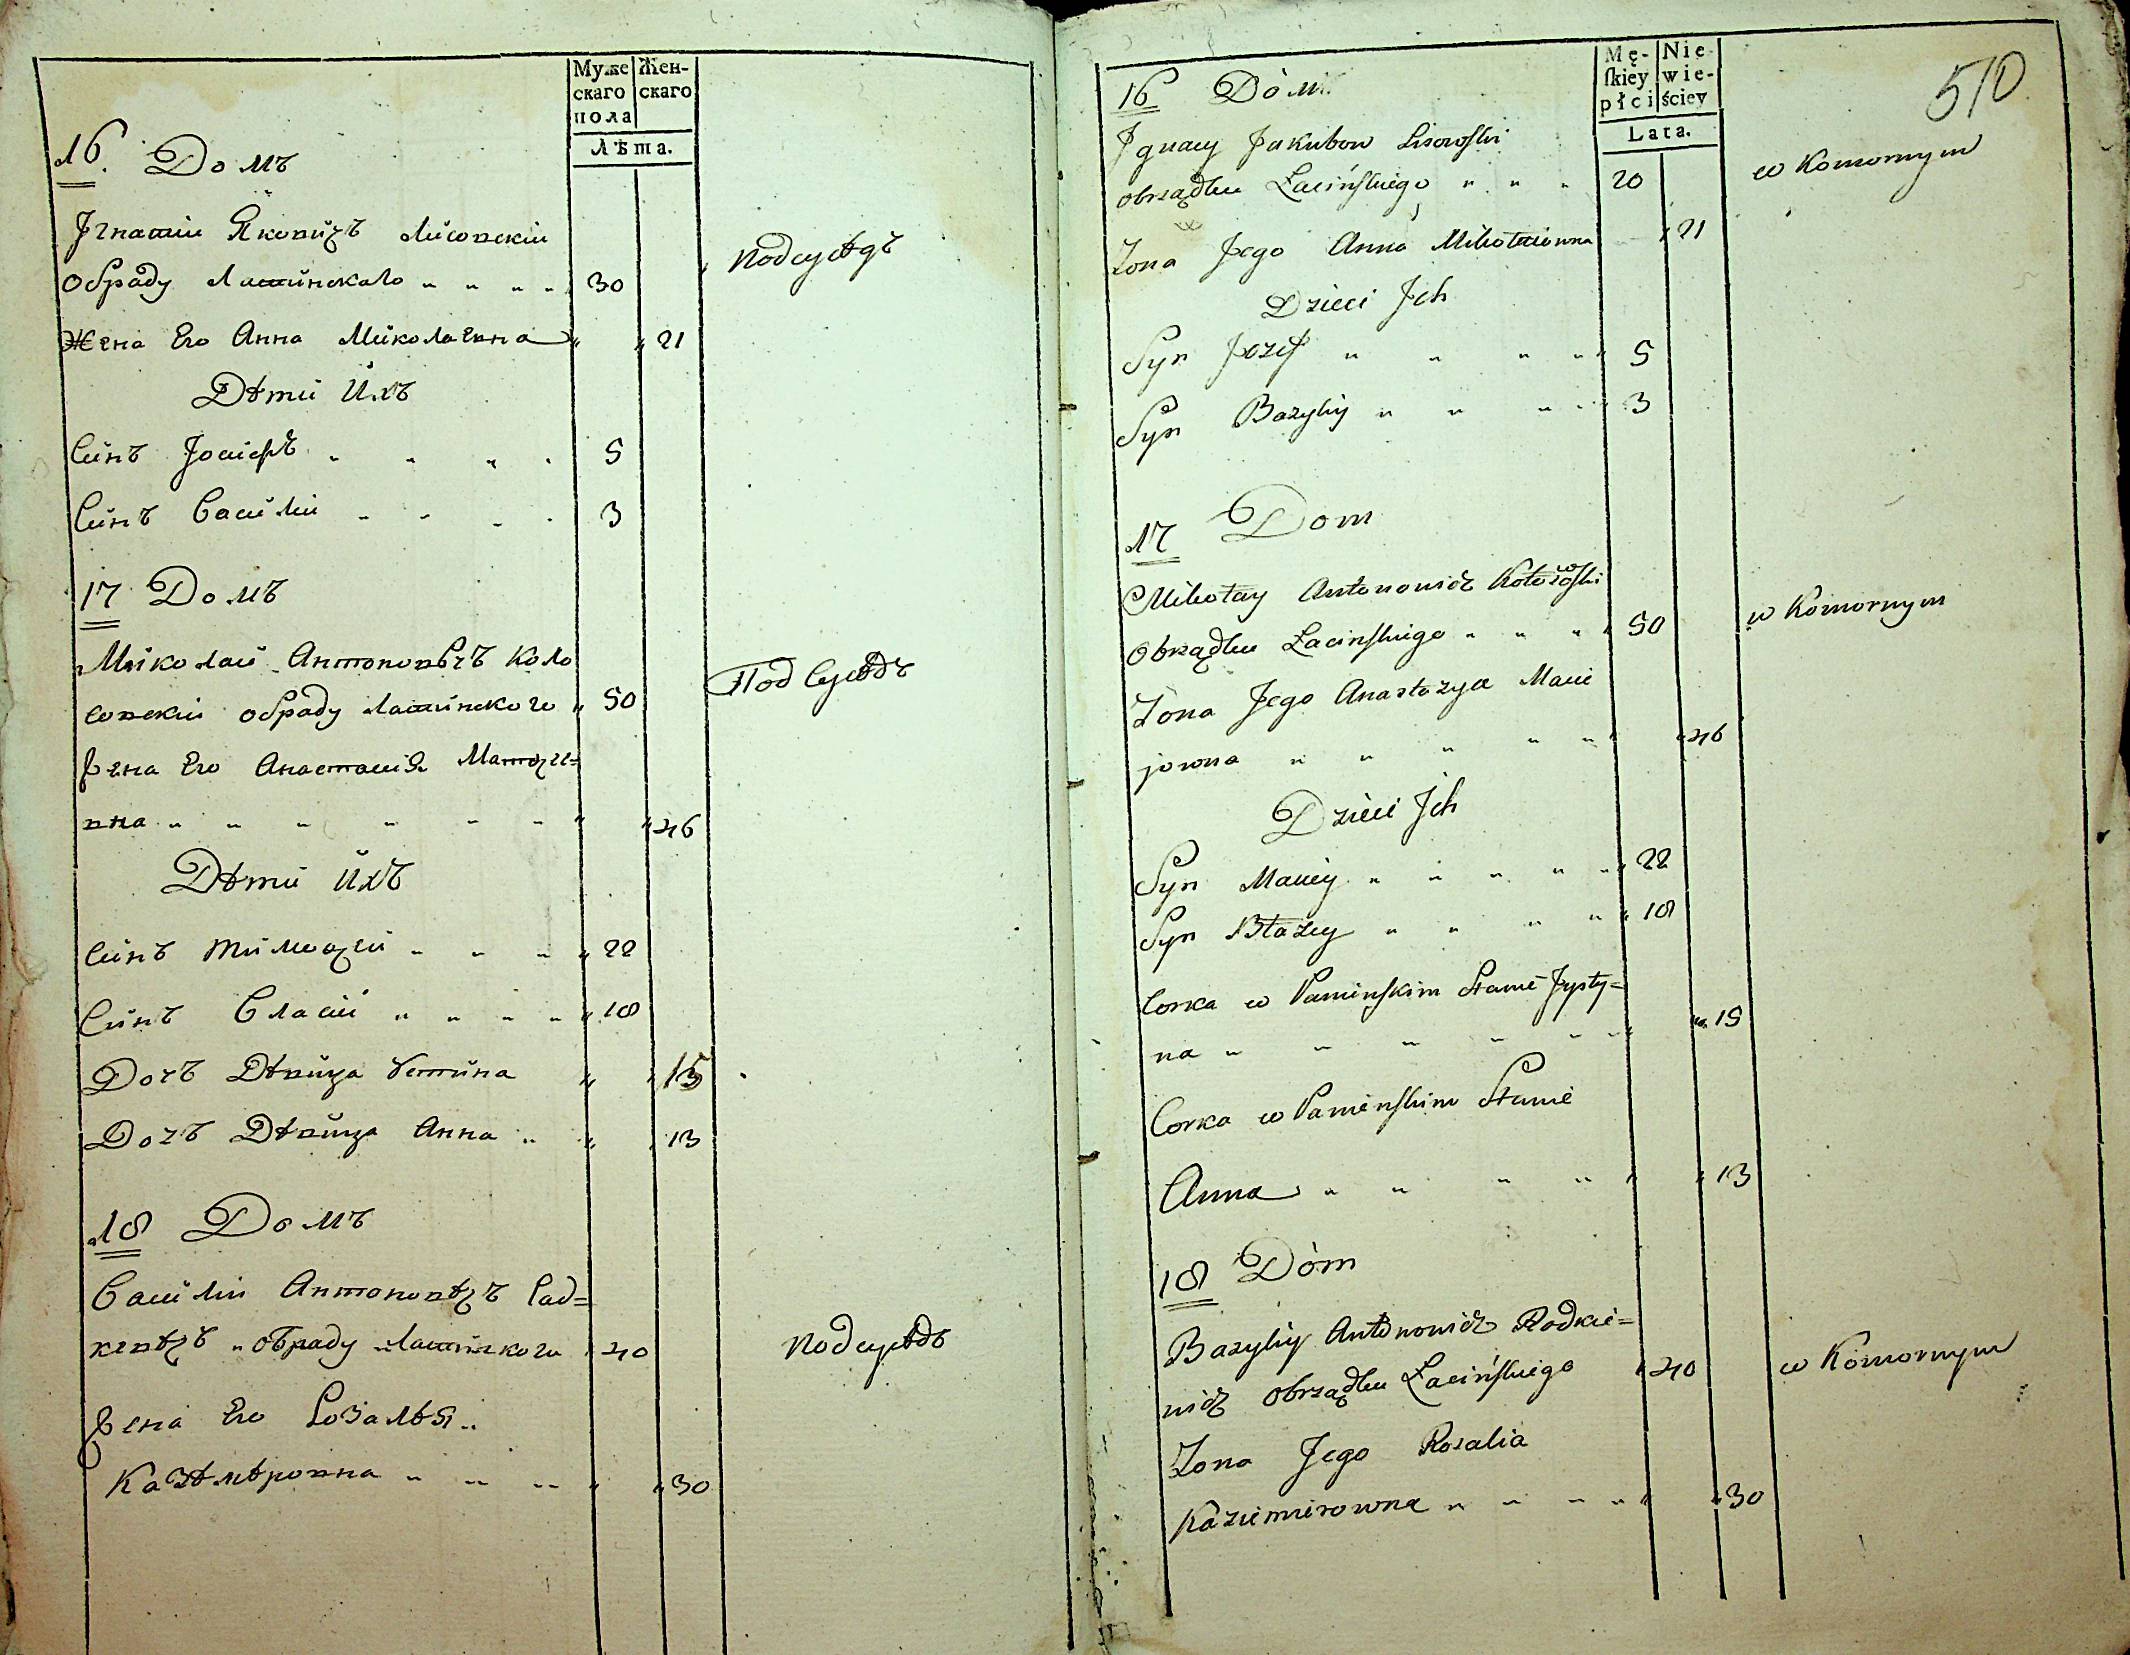 Муже Жен-
скаго скаго
пола
Лѣта.
16. Домъ
Игнатій Яковичъ Лисовскій
обряду Латинскаго " " " " 30
подсусѣдъ
Жена Его Анна Миколаевна " " 21
Дѣти Ихъ
Синъ Іосифъ " " " " 5
Синъ Василій " " " " 3
17 Домъ
Миколай Антоновичъ Коло
совскій обряду Латинского " 50
Под Сусѣдъ
Жена Его Анастасія Матѳее=
вна " " " " " " " " 46
Дѣти Ихъ
Синъ Тимоѳей " " " " 22
Синъ Власій " " " " " 18
Дочъ Дѣвица Устина " " 15
Дочъ Дѣвица Анна " " " 13
18 Домъ
Василій Антоновѣчъ Рад=
кевѣчъ обряду Латинского " 40
подсусѣдъ
Жена Его Розалѣя "
Казѣмѣровна " " " " " 30
510
Mę- Nie
skiey wie-
płci ściey
Lata.
16 Dóm
Jgnacy Jakubow Lisowski
obrządku Łacińskiego " " " 20
w Komornym
Zona Jego Anna Mikołaiowna " 21
Dzieci Jch
Syn Jozef " " " " " 5
Syn Bazyliy " " " " 3
17 Dom
Mikołay Antonowicz Kołosowski
Obrządku Łacinskiego " " " " 50
w Komornym
Zona Jego Anastazya Macie
jowna " " " " " " " 46
Dzieci Jch
Syn Maciey " " " " " " 22
Syn Błażey " " " " " 18
Corka w Panienskim Stanie Justy=
na " " " " " " " " 15
Corka w Panienskim Stanie
Anna " " " " " " 13
18 Dóm
Bazyliy Antonowicz Rodkie=
wicz obrządku Łacińskiego " 40
w Komornym
Zona Jego Rozalia
Kazimierowna " " " " " " 30